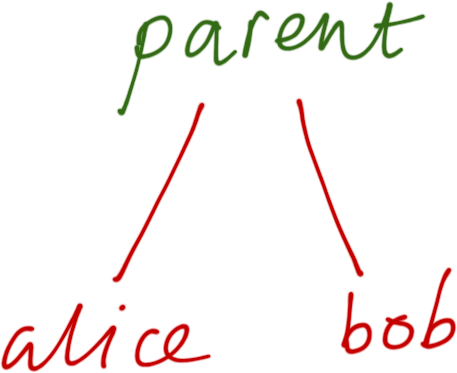 parent
alice bob